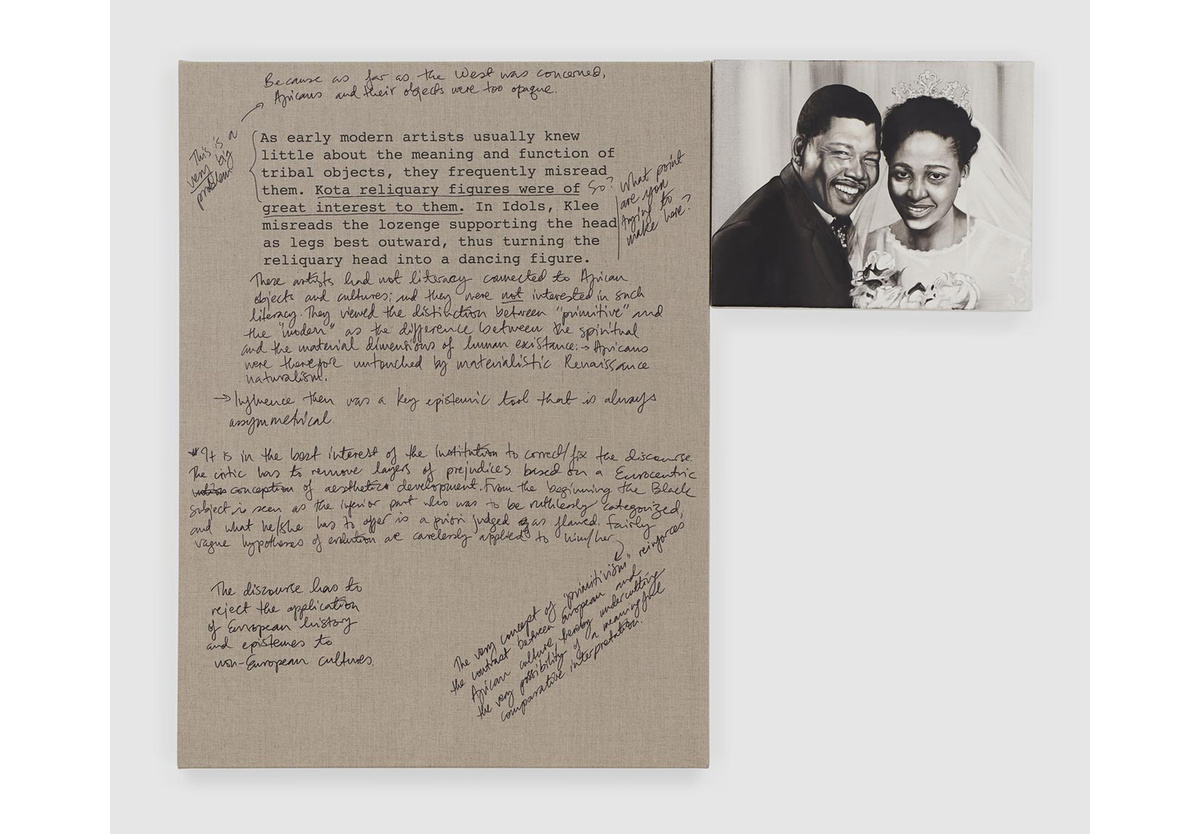 Because as far as the West was concerned,
Africans and their objects were too opaque.
This is a
very big
problem!
As early modern artists usually knew
little about the meaning and function of
tribal objects, they frequently misread
them. Kota reliquary figures were of
great interest to them. In Idols, Klee
misreads the lozenge supporting the head
as legs best outward, thus turning the
reliquary head into a dancing figure.
So? What point
are you
trying to
make here?
These artists had not literacy connected to African
objects and cultures; and they were not interested in such
literacy. They viewed the distinction between "primitive" and
the "modern" as the difference between the spiritual
and the material dimensions of human existance: → Africans
were therefore untouched by materialistic Renaissance
naturalism.
→ Influence then was a key epistemic tool that is always
assymmetrical.
It is in the best interest of the institution to correct/fix the discourse.
The critic has to remove layers of prejudices based on a Eurocentric
conception of aesthetic development. From the beginning the Black
subject is seen as the inferior part who was to be ruthlessly categorized,
and what he/she has to offer is a priori judged as flawed. Fairly
vague hypotheses of evolution are carelessly applied to him/her
The very concept of "primitivism" reinforces
the contrast between European and
African culture, hereby undercutting
the very possibility of a meaningful
comparative interpretation.
The discourse has to
reject the application
of European history
and epistemes to
non-European cultures.